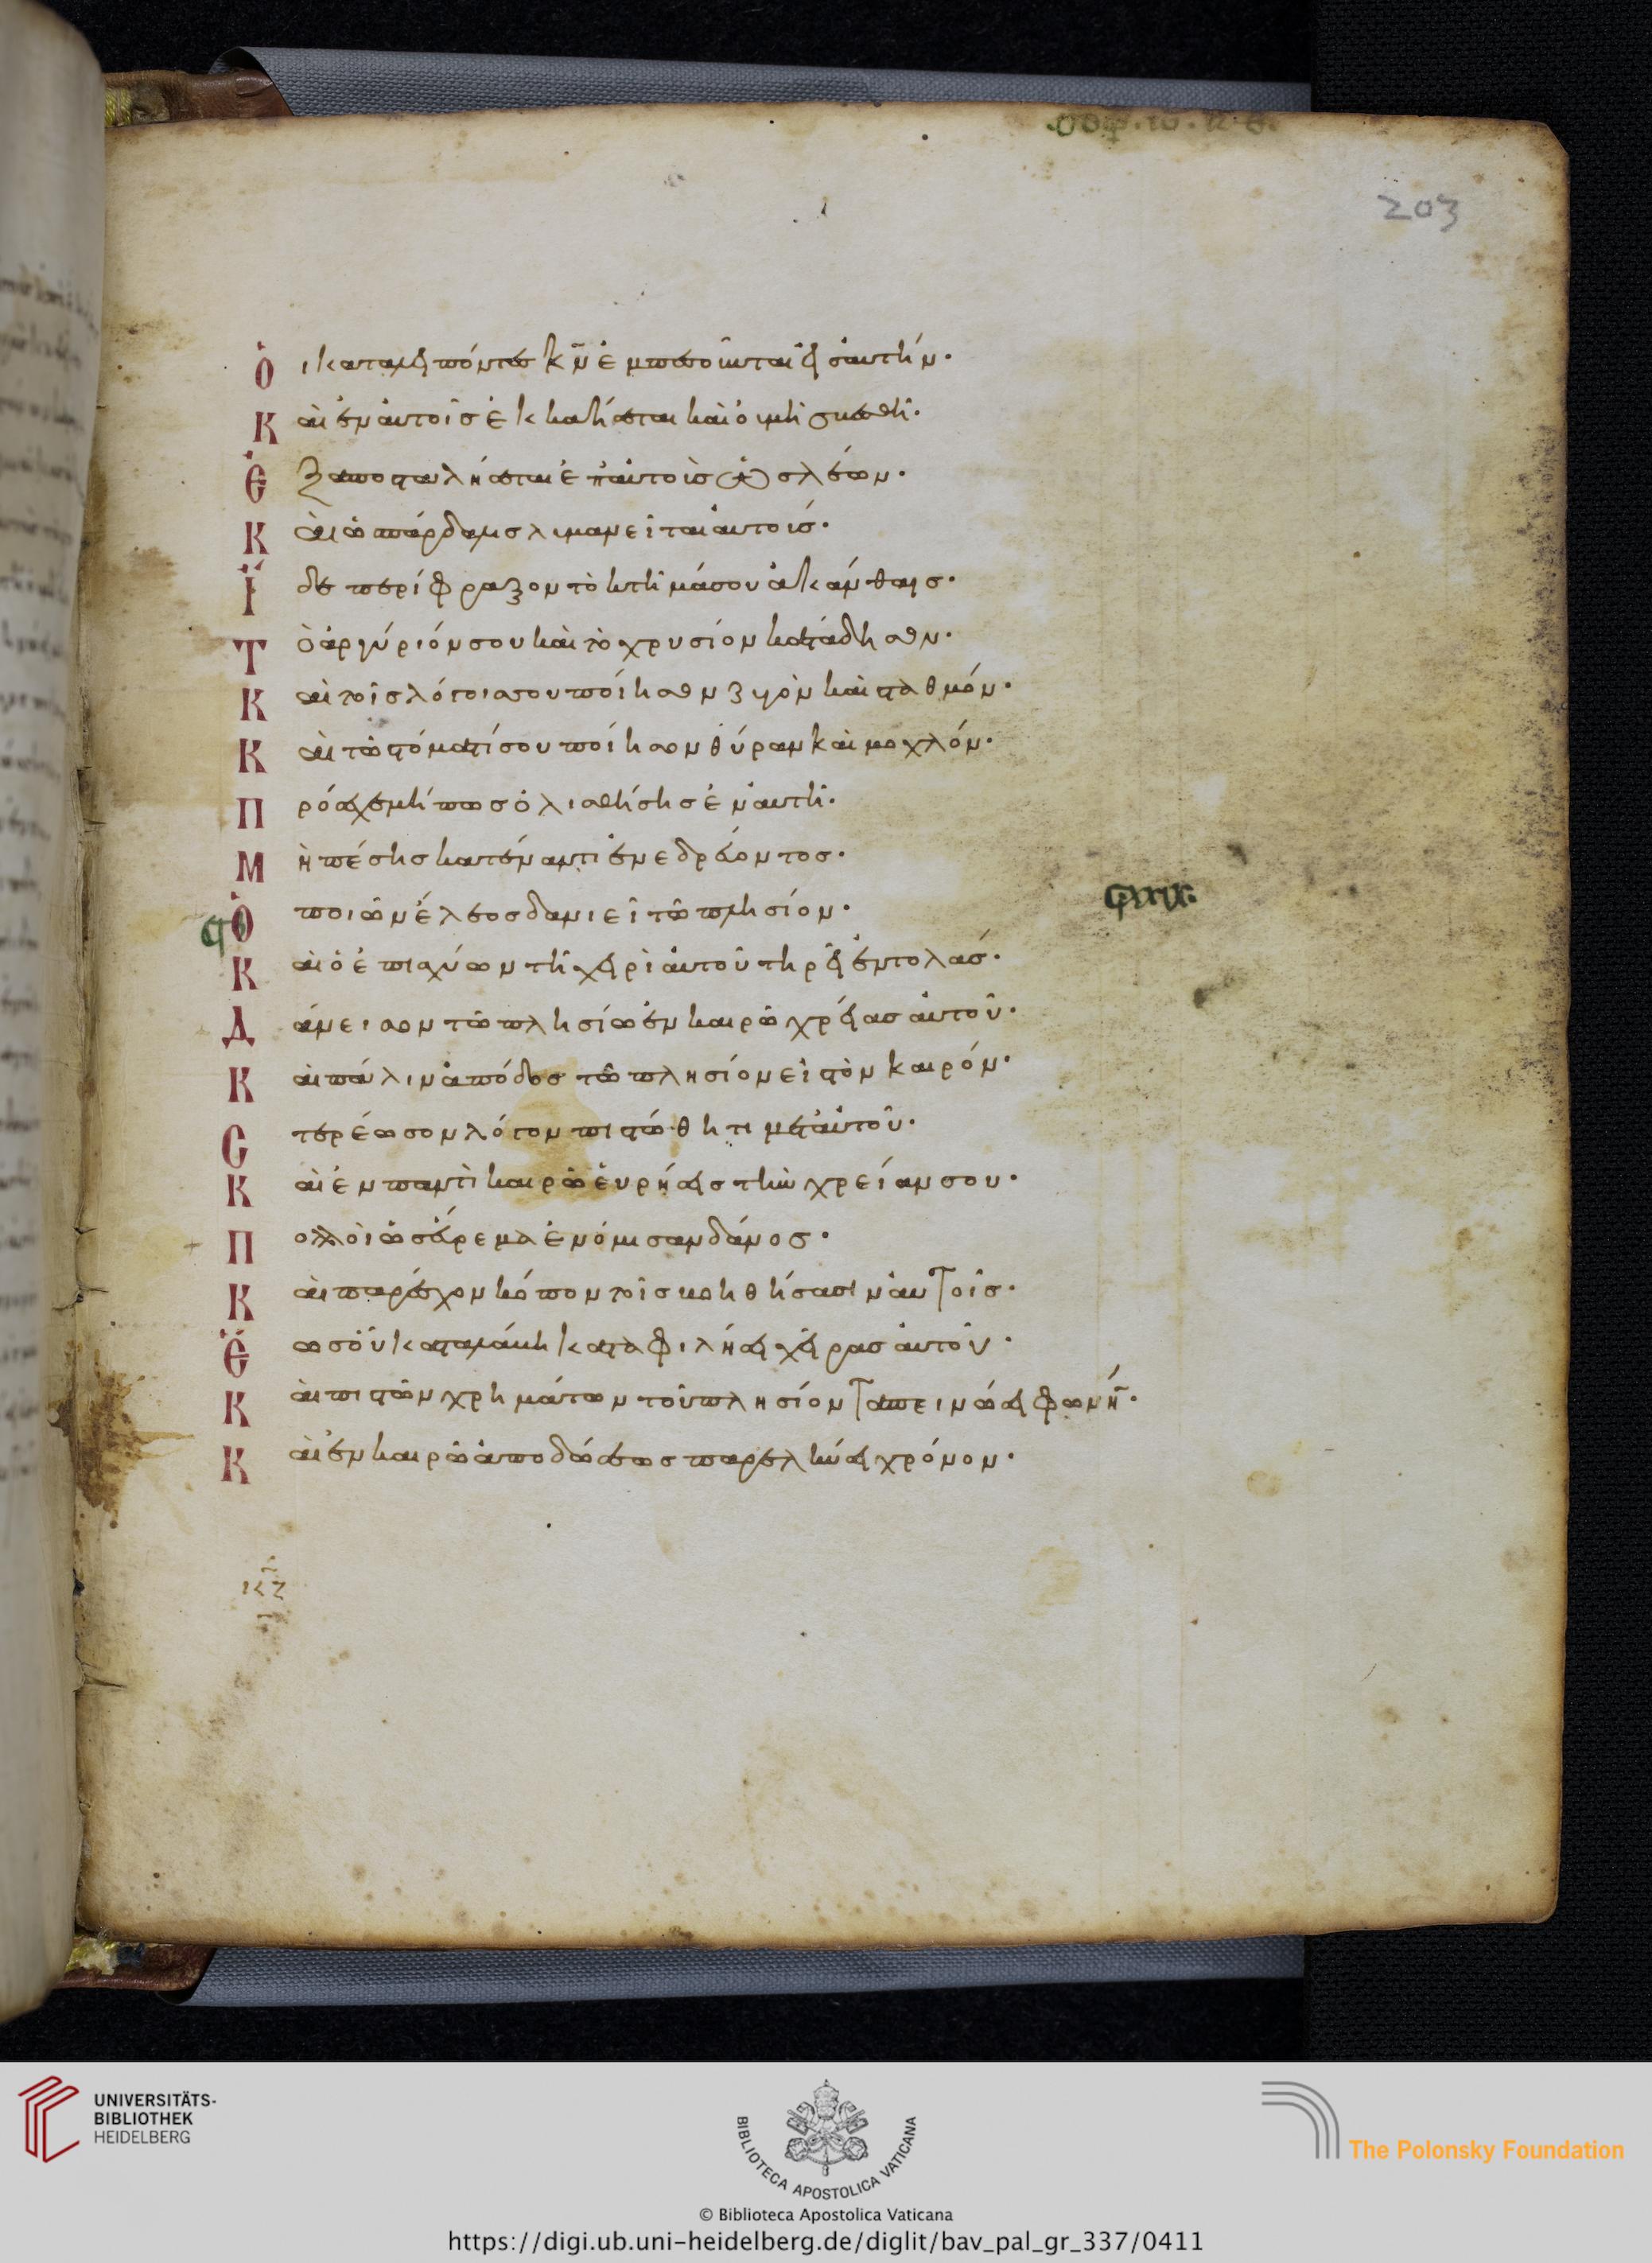 203
Οἱ καταλείποντες κν ἐμπεσοῦνται εἰς αὐτήν·
Καὶ ἐν αὐτοῖς ἐκκαήσεται καὶ οὐ μὴ σβεσθῇ·
Ἐξαποσταλήσεται ἐπ' αὐτοῖς ὡς λέων·
Καὶ ὡς πάρδαλις λυμανεῖται αὐτοῖς·
Ἴδε περίφραξον τὸ κτῆμά σου ἀκάνθαις·
Τὸ ἀργύριόν σου καὶ τὸ χρυσίον κατάδησον·
Καὶ τοῖς λόγοις σου ποίησον ζυγὸν καὶ σταθμόν·
Καὶ τῷ στόματί σου ποίησον θύραν καὶ μοχλόν·
Πρόσεχε μήπως ὀλισθήσης ἐν αὐτῇ·
Μὴ πέσης κατέναντι ἐνεδρεύοντος·
Ὁ ποιῶν ἔλεος δανιεῖ τῷ πλησίον·
Καὶ ὁ ἐπισχύων τῇ χειρὶ αὐτοῦ τηρεῖ ἐντολάς·
Δάνεισον τῷ πλησίω ἐν καιρῷ χρείας αὐτοῦ·
Καὶ πάλιν ἀπόδος τῷ πλησίον εἰς τὸν καιρόν·
Στερέωσον λόγον πιστώθητι μετ' αὐτοῦ·
Καὶ ἐν παντὶ καιρῷ εὑρήσεις τὴν χρείαν σου·
Πολλοὶ ὡς εὕρεμα ἐνόμισαν δάνος·
Καὶ παρέσχον κόπον τοῖς βοηθήσασιν αὐτοῖς·
Ἕως οὗ καταλάβη καταφιλήσει χεῖρας αὐτοῦ·
Καὶ ἐπὶ τῶν χρημάτων τοῦ πλησίον ταπεινώσει φωνήν·
Καὶ ἐν καιρῷ ἀποδώσεως παρελκύσει χρόνον·
UNIVERSITÄTS-
BIBLIOTHEK
HEIDELBERG
BIBLIOTECA APOSTOLICA VATICANA
The Polonsky Foundation
© Biblioteca Apostolica Vaticana
https://digi.ub.uni-heidelberg.de/diglit/bav_pal_gr_337/0411